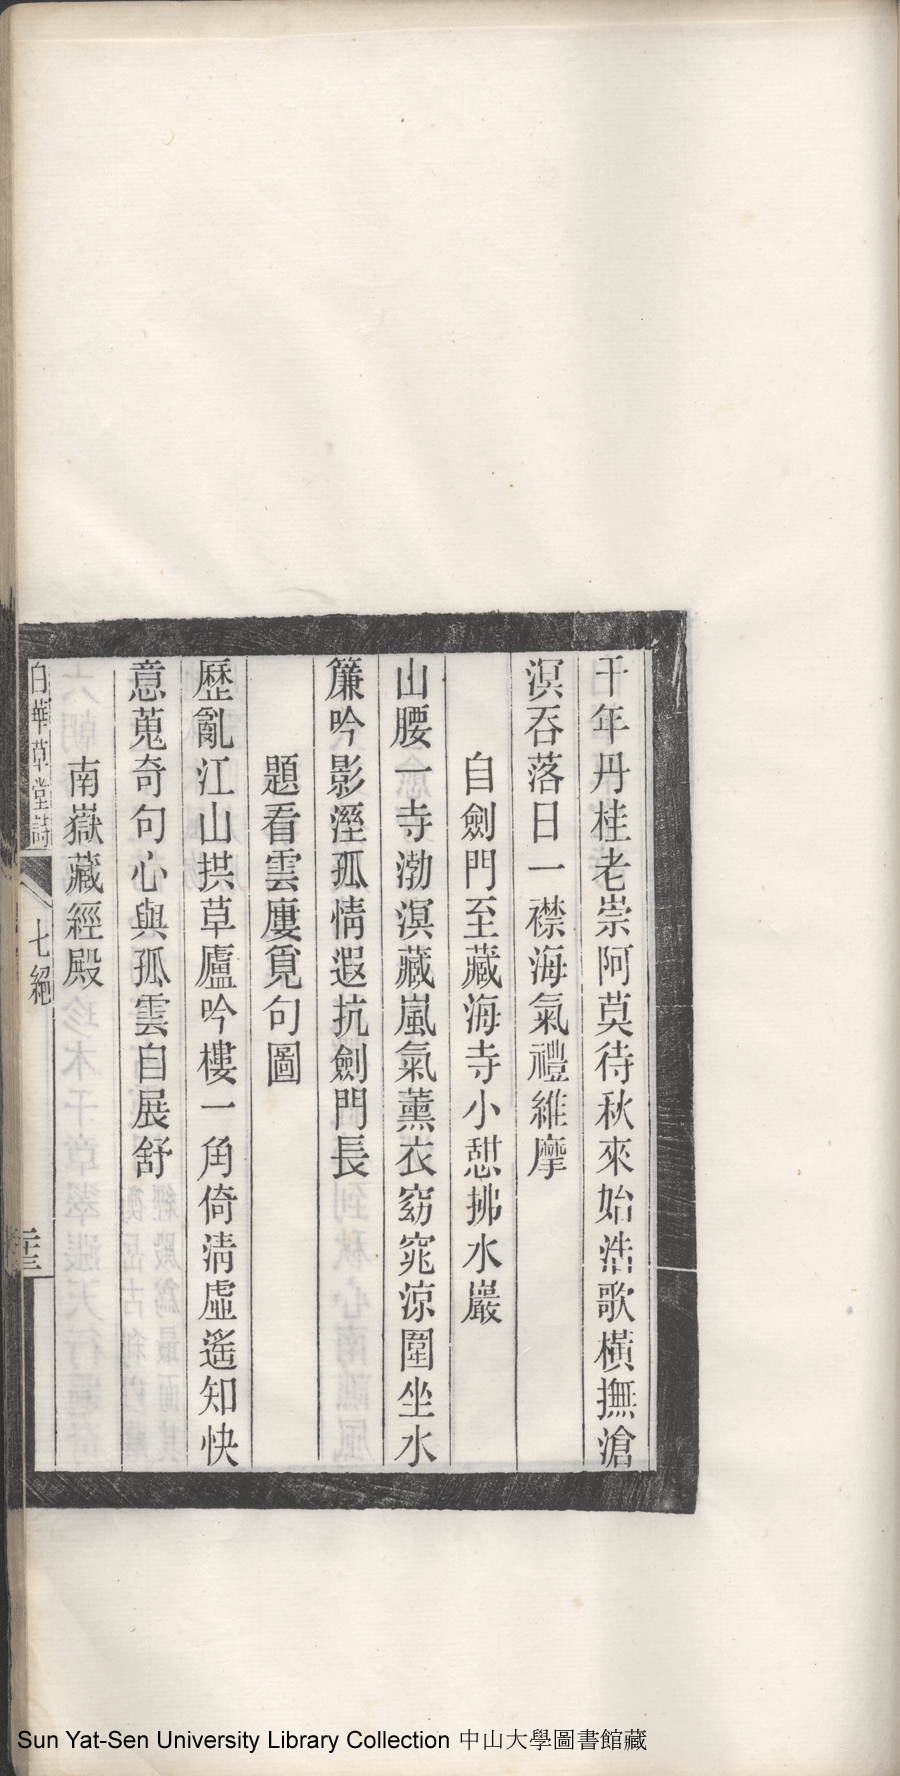 千年丹桂老崇阿莫待秋來始浩歌橫撫滄
溟吞落日一襟海氣禮維摩
自劍門至藏海寺小憇拂水巖
山腰一寺渤溟藏嵐氣薰衣窈窕涼圍坐水
簾吟影溼孤情遐抗劍門長
題看雲廔覓句圖
歷亂江山拱草廬吟樓一角倚清虛遙知快
意蒐奇句心與孤雲自展舒
南嶽藏經殿
白華草堂詩 七絕
Sun Yat-Sen University Library Collection 中山大學圖書館藏